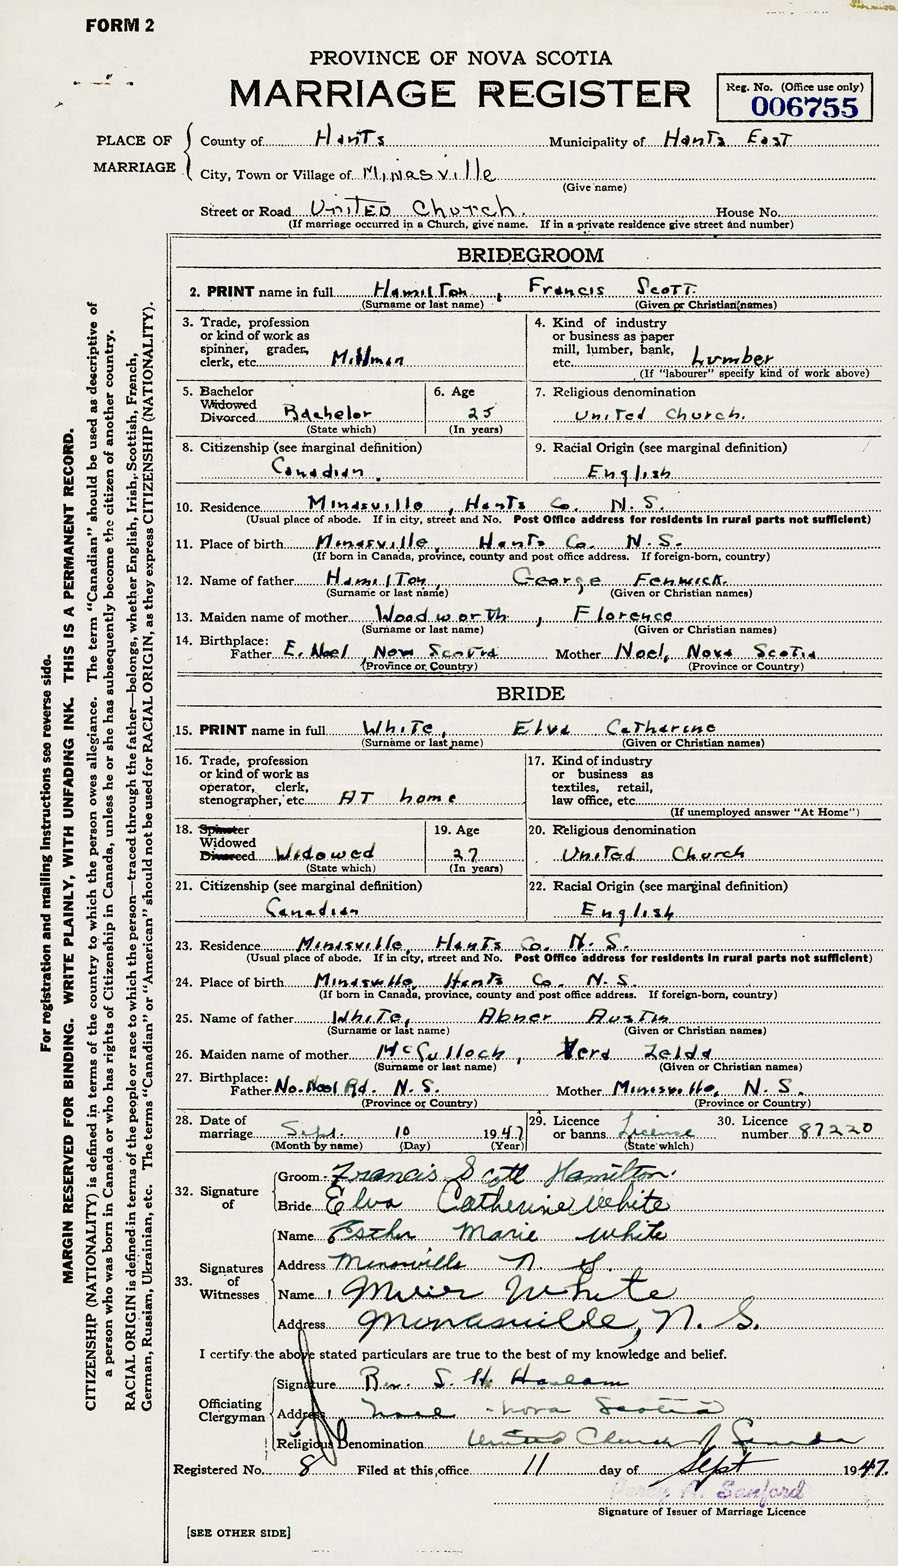 FORM 2
PROVINCE OF NOVA SCOTIA
MARRIAGE REGISTER
Reg. No. (Office use only)
006755
PLACE OF MARRIAGE
County of Hants Municipality of Hants East
City, Town or Village of Minasville
(Give name)
Street or Road United Church. House No.
(If marriage occurred in a Church, give name. If in a private residence give street and number)
BRIDEGROOM
2. PRINT name in full Hamilton, Francis Scott.
(Surname or last name) (Given or Christian names)
3. Trade, profession or kind of work as spinner, grader, clerk, etc. Millman
4. Kind of industry or business as paper mill, lumber, bank, etc. Lumber
(If "labourer" specify kind of work above)
5. Bachelor Widowed Divorced Bachelor
(State which)
6. Age 25
(In years)
7. Religious denomination
United Church.
8. Citizenship (see marginal definition)
Canadian
9. Racial Origin (see marginal definition)
English
10. Residence Minasville, Hants Co. N.S.
(Usual place of abode. If in city, street and No. Post Office address for residents in rural parts not sufficient)
11. Place of birth Minasville, Hants Co. N.S.
(If born in Canada, province, county and post office address. If foreign-born, country)
12. Name of father Hamilton, George Fenwick.
(Surname or last name) (Given or Christian names)
13. Maiden name of mother Woodworth, Florence
(Surname or last name) (Given or Christian names)
14. Birthplace:
Father E. Noel Nova Scotia Mother Noel, Nova Scotia
(Province or Country) (Province or Country)
BRIDE
15. PRINT name in full White, Elva Catharine
(Surname or last name) (Given or Christian names)
16. Trade, profession or kind of work as operator, clerk, stenographer, etc. AT home
17. Kind of industry or business as textiles, retail, law office, etc.
(If unemployed answer "At Home")
18. Spinster Widowed Divorced Widowed
(State which)
19. Age 27
(In years)
20. Religious denomination
United Church
21. Citizenship (see marginal definition)
Canadian
22. Racial Origin (see marginal definition)
English
23. Residence Minasville, Hants Co. N.S.
(Usual place of abode. If in city, street and No. Post Office address for residents in rural parts not sufficient)
24. Place of birth Minasville, Hants Co. N.S.
(If born in Canada, province, county and post office address. If foreign-born, country)
25. Name of father White, Abner Austin
(Surname or last name) (Given or Christian names)
26. Maiden name of mother McCulloch, Vera Zelda
(Surname or last name) (Given or Christian names)
27. Birthplace:
Father No. Noel Rd. N.S. Mother Minasville, N.S.
(Province or Country) (Province or Country)
28. Date of marriage Sept. 10 1947
(Month by name) (Day) (Year)
29. Licence or banns License
(State which)
30. Licence number 87220
32. Signature of
Groom Francis Scott Hamilton.
Bride Elva Catherine White
33. Signatures of Witnesses
Name Esther Marie White
Address Minasville N. S.
Name Muir White
Address Minasville, N. S.
I certify the above stated particulars are true to the best of my knowledge and belief.
Officiating Clergyman
Signature Rev. S. H. Haslam
Address Noel Nova Scotia
Religious Denomination United Church of Canada
Registered No. 8 Filed at this office 11 day of Sept 1947.
Percy A. Sanford
Signature of Issuer of Marriage Licence
[SEE OTHER SIDE]
For registration and mailing instructions see reverse side.
MARGIN RESERVED FOR BINDING. WRITE PLAINLY, WITH UNFADING INK. THIS IS A PERMANENT RECORD.
CITIZENSHIP (NATIONALITY) is defined in terms of the country to which the person owes allegiance. The term "Canadian" should be used as descriptive of
a person who was born in Canada or who has rights of Citizenship in Canada, unless he or she has subsequently become the citizen of another country.
RACIAL ORIGIN is defined in terms of the people or race to which the person—traced through the father—belongs, whether English, Irish, Scottish, French,
German, Russian, Ukrainian, etc. The terms "Canadian" or "American" should not be used for RACIAL ORIGIN, as they express CITIZENSHIP (NATIONALITY).